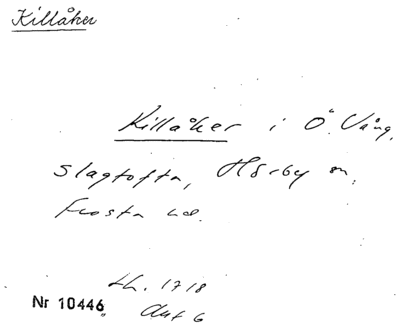 Killåker
Killåker i Ö. Vång,
Slagtofta, Hörby sn,
Frosta hd.
Lh. 1718
Nr 10446, Akt 6